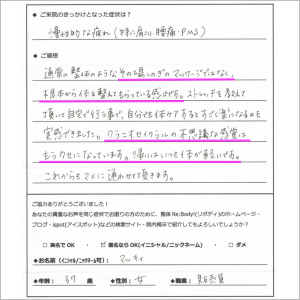 ◆ ご来院のきっかけとなった症状は？
慢性的な疲れ（特に肩こり・腰痛・PMS）
◆ ご感想
通常の整体のようなその場しのぎのマッサージではなく、
根本から体を整えてもらっている感じです。ストレッチを教えて
頂いて自宅で行う事で、自分でも体ケアするとすごく楽になるのを
実感できました。クラニオセイクラルの不思議な感覚は
もうクセになっています。帰りはいつも体が軽いです。
これからもマメに通わせて頂きます。
ご協力ありがとうございました！
あなたの貴重なお声を同じ症状でお困りの方のために、整体 Re:Body(リボディ)のホームページ・
ブログ・spot(アイスポット)などの検索サイト・院内掲示で紹介してもよろしいでしょうか？
・ 実名で OK ・ 匿名なら OK(イニシャル/ニックネーム) ・ ダメ
◆お名前(イニシャル/ニックネーム可)： マッキィ
◆年齢： 37 歳 ◆性別： 女 ◆職業： 販売員